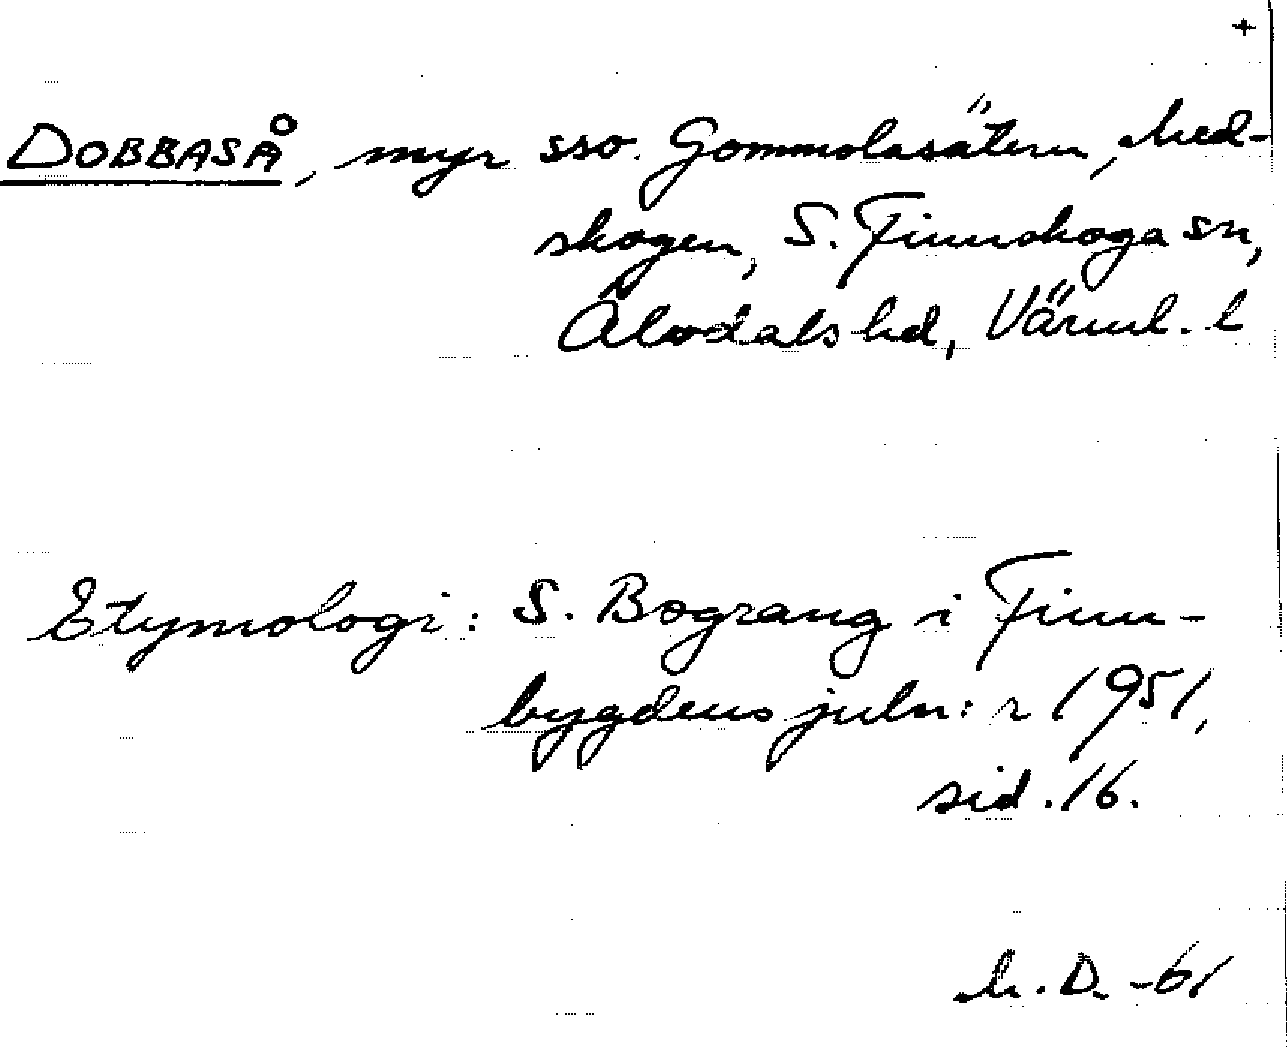 +
DOBBASÅ, myr sso. Gommolasätern, Med-
skogen, S. Finnskoga sn,
Älvdals hd, Värml. l
Etymologi: S. Bograng i Finn-
bygdens juln:r 1951,
sid. 16.
M. D. -61